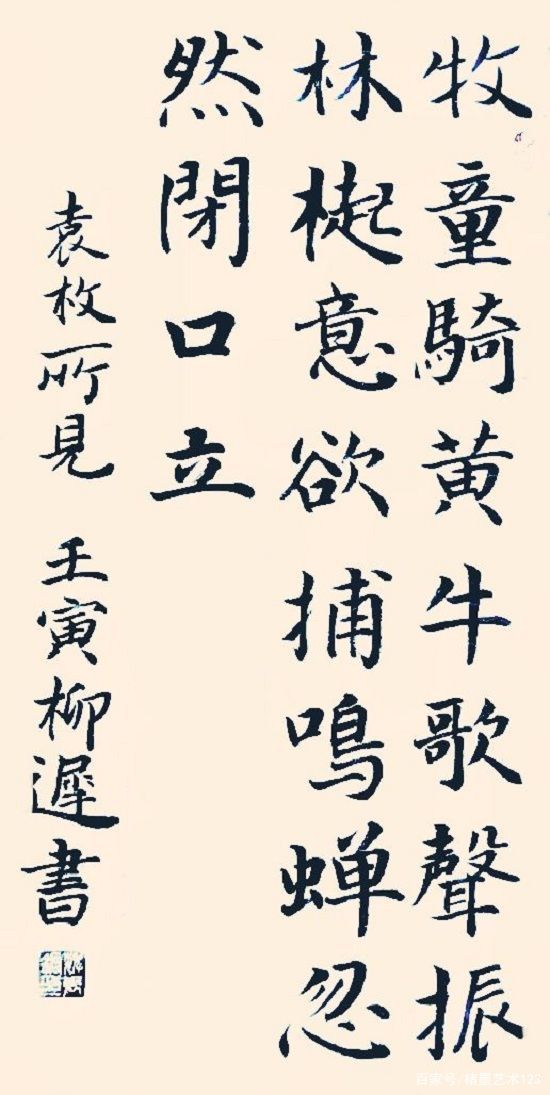 牧童騎黄牛歌聲振
林樾意欲捕鳴蝉忽
然閉口立
袁枚所見 壬寅柳遲書
百家号/楮墨艺术123